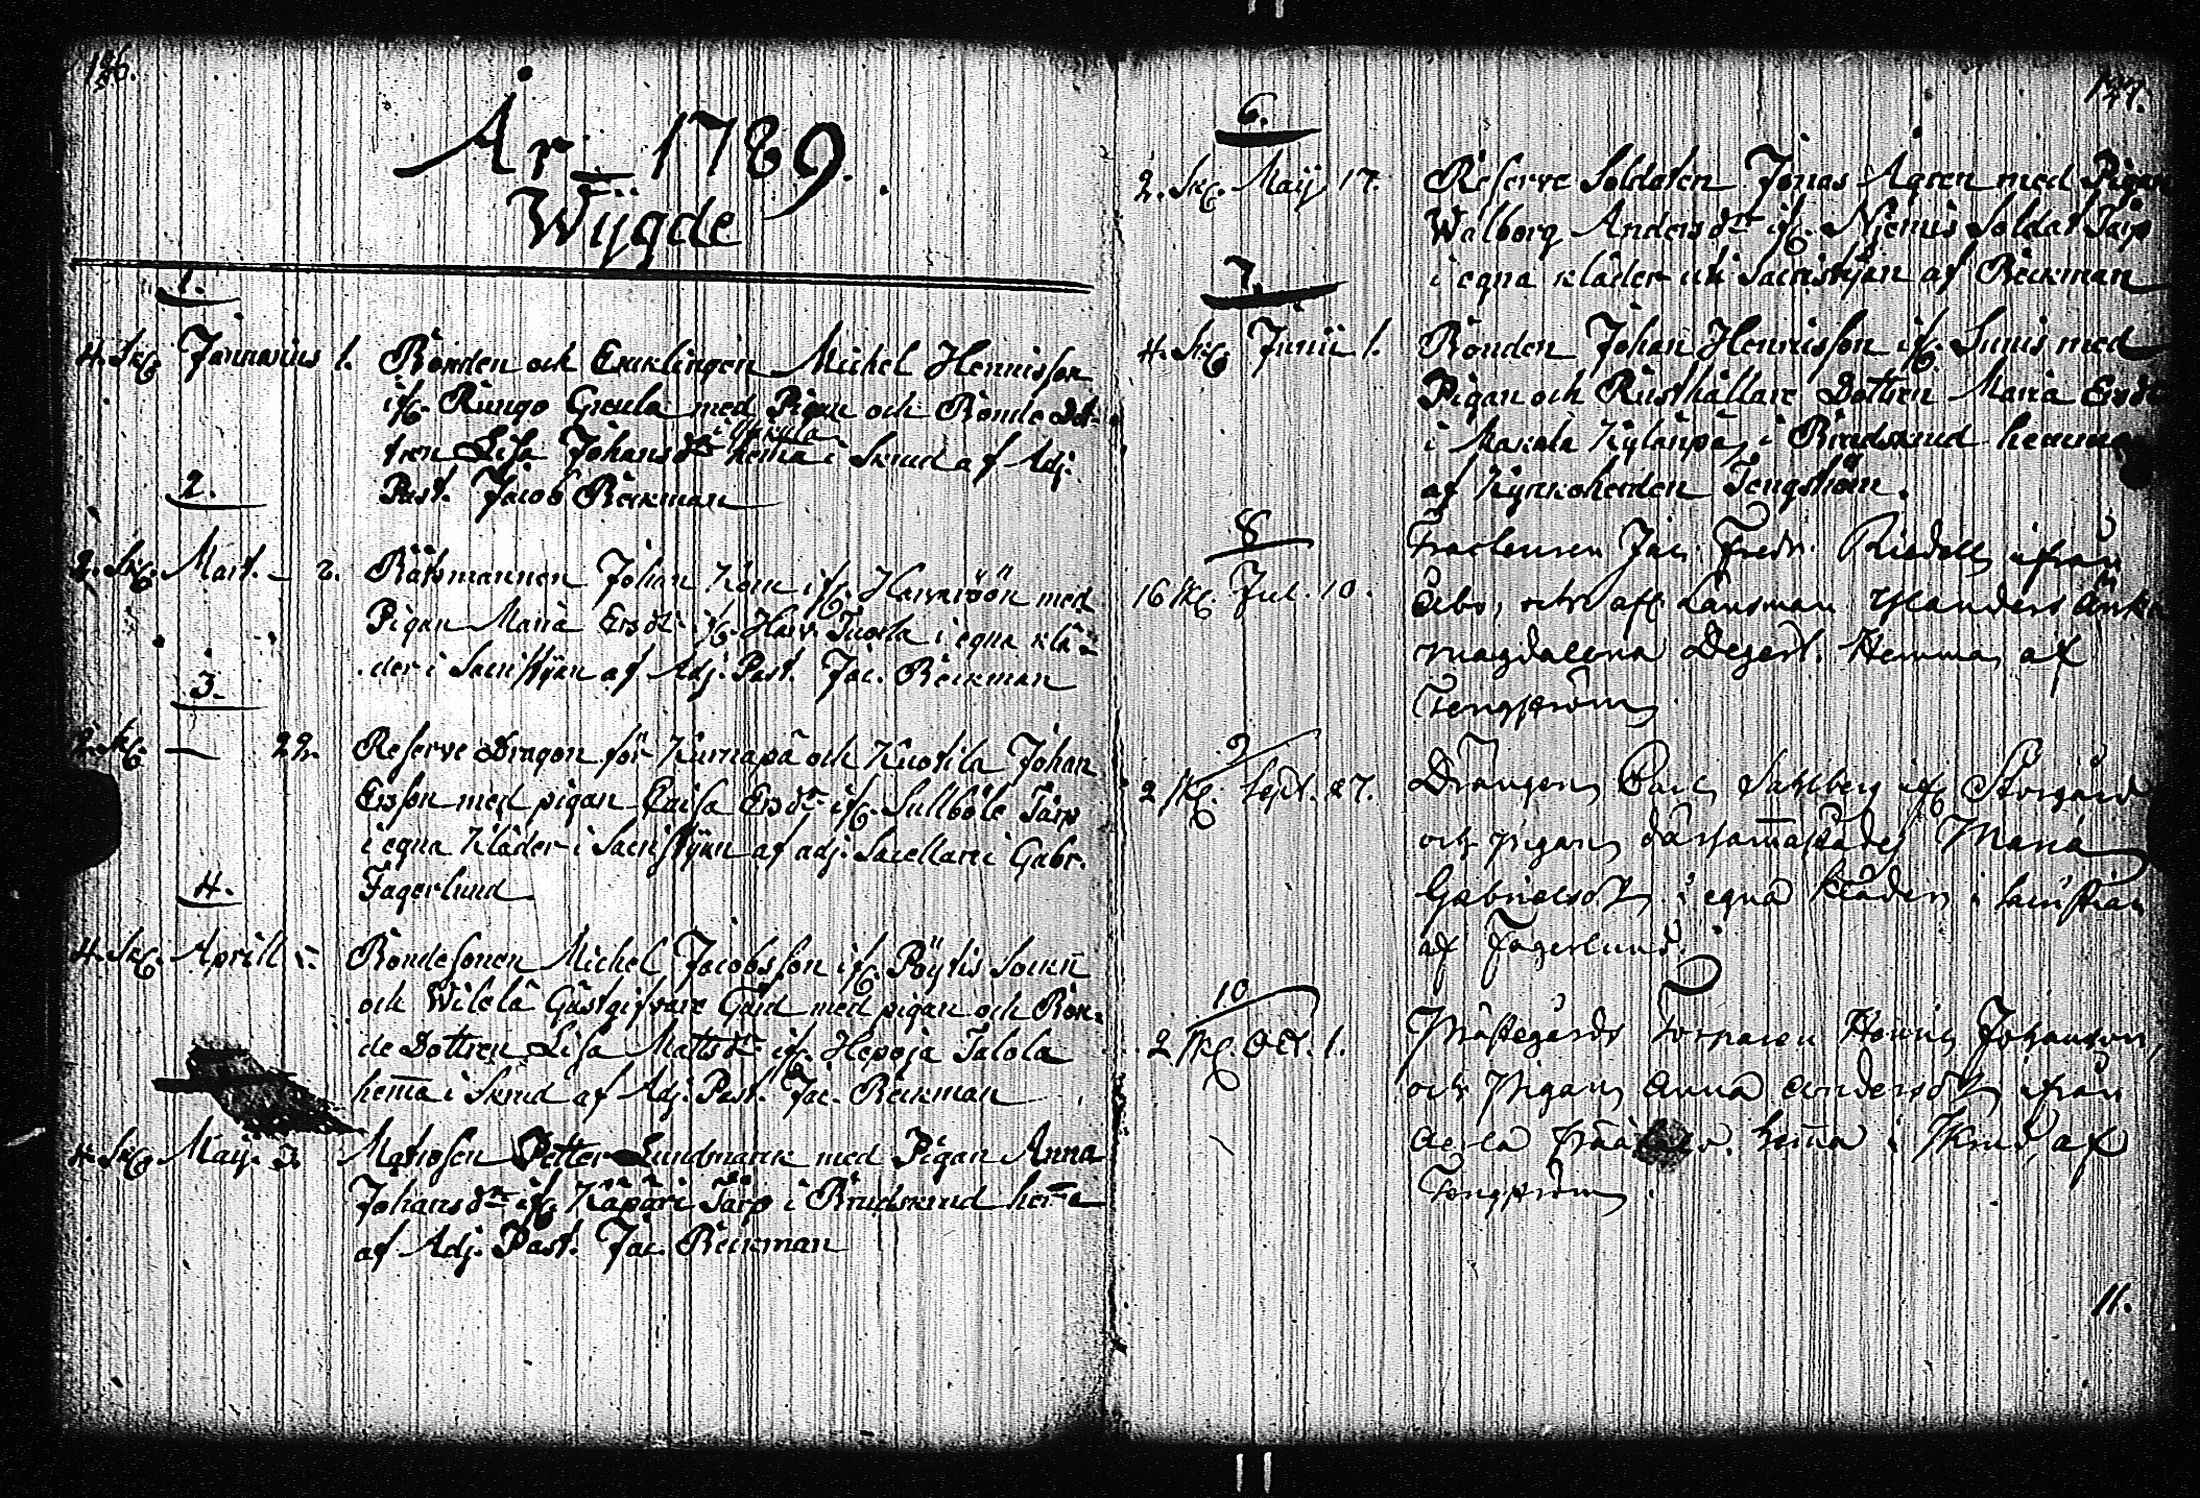 146.
År 1789.
Wijgde
1.
4. Sk. Januarius 1. Bonden och Encklingen Michel Hennisson
if. Rungo Greula med Pigan och Bonde Dot-
tren Lisa Johansdtr hem̄a i Skrud af Adj.
Past. Jacob Beckman
2.
2. Sk. Mart. 2. Rätsmannen Johan med
Pigan Maria Ersdtr if. Harv. Tuorla i egna klä-
der i Sacristijan af Adj. Past. Jac. Beckman
3.
2. Sk. — 22. Reserve Dragon för Kurnapä och Kuotila Johan
Ersson med pigan Caisa Ersdtr if. Sullböle Tårp
i egna kläder i Sacristijan af adj. Sacellani Gabr.
Fagerlund
4.
4. Sk. Aprill Bondesonen Michel Jacobsson if. Pöytis Sockn
och Wilelä Gästgifvare Gård med pigan och Bon-
de Dottren Lisa Mattsdtr if. Hepoja Talola
hem̄a i Skrud af Adj. Past. Jac. Beckman
4. Sk. Maij. 3. Matrosen Petter Lundmarck med Pigan Anna
Johansdtr if. Käpäri Tårp i Brudskrud hem̄a
af Adj. Past. Jac. Beckman
147.
6.
2. Sk. Maij 17. Reserve Soldaten Jonas Agren med Pigan
Walborg Andersdtr if. Njemis Soldat Tårp
i egna kläder uti Sacristijan af Beckman
7.
4. Sk. Junii 1. Bonden Johan Hennisson if. Junis med
Pigan och Rusthållare Dottren Maria Ersdtr
i Makala Kylänpä i Brudskrud hemma
af Kyrkoherden Tengström.
8
16 sk. Jul. 10. Jac. Fredr. Riedell ifrån
Åbo, och afl. Länsman Ylanders Änka
Magdalena Degert. Hemma af
Tengström
9
2 sk. Sept. 27. Drängen Carl Sahlberg if. Storgård
och pigan därsam̄astädes Maria
Gabrielsdtr i egna kläder i Sacristian
af Fagerlund.
10
2 sk. Oct. 1. Prästegårds Torparen Henric Johansson,
och Pigan Anna Andersdtr ifrån
hem̄a i Skrud af
Tengström.
11.